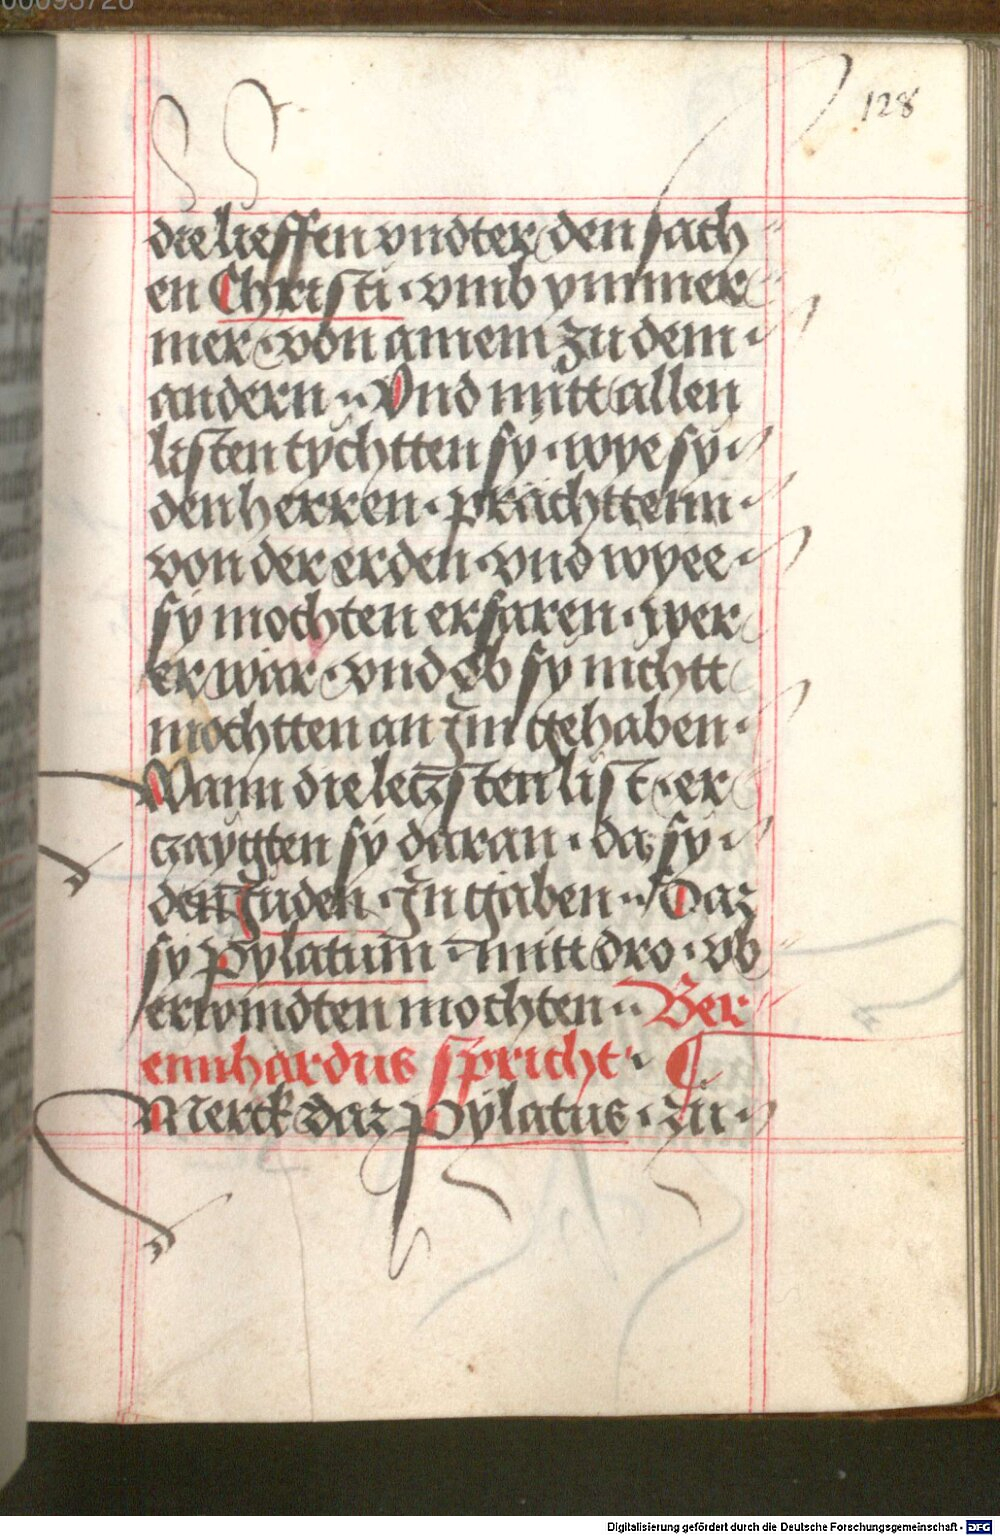 00093726
128
die lieffen vndter den sach
en Christi · vmb ymmer
mer · von ainem zu dem ·
andern ·· Vnd mitt allen
listen tychtten sy · wye sy ·
den herren · prächttenn ·
von der erden · vnd wyee ·
sy mochten erfaren · wer
er wär · vnd ob sy nichtt
mochtten an Im gehaben ·
Wann die letzsten list · er
zaygten sy daran · da sy ·
den Juden · In gaben ·· Daz
sy pylatum · mitt dro · vb
erwindten mochten ·· Ber
ennhardus spricht · ¶
Merck daz pylatus · zu ·
Digitalisierung gefördert durch die Deutsche Forschungsgemeinschaft - DFG